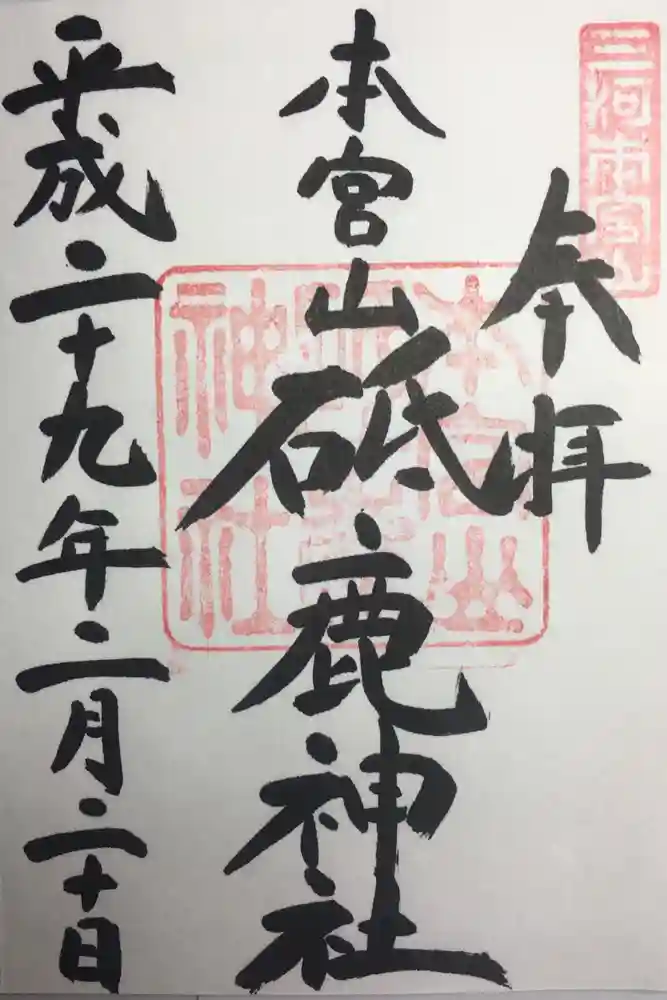 三河本宮山
奉拝
本宮山砥鹿神社
本宮山砥鹿神社
平成二十九年二月二十日